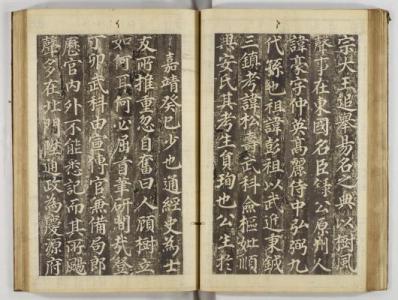 宗大王追擧易名之典以樹風
聲事在東國名臣錄公原州人
諱豪字仲英高麗侍中弘弼九
代孫也祖諱彭祖以武秉鉞
三鎮考諱松壽武科僉樞妣順
興安氏其考生員珣也公生於
嘉靖癸巳少也通經史爲士
友所推重忽自奮曰人顧樹立
如何耳何必屈首筆研間哉登
丁卯武科由宣傳官兼備局郎
歷官內外不能悉記而其所颺
聲多在北門陞通政爲慶源府